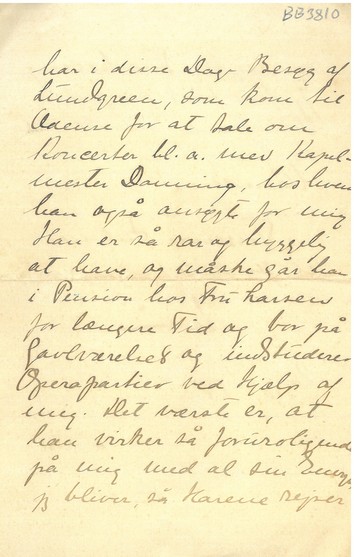 BB3810
har i disse Dage Besøg af
Lundgreen, som kom til
Odense for at tale om
Koncerter bl. a. med Kapel-
mester Danning, hos hvem
han også ansøgte for mig
Han er så rar og hyggelig
at have, og måske går han
i Pension hos Fru Larsen
for længere Tid og bor på
Gavlværelset og indstuderer
Operapartier ved Hjælp af
mig. Det værste er, at
han virker så foruroligende
på mig med al sin Energi
jeg bliver, så Harene rejser